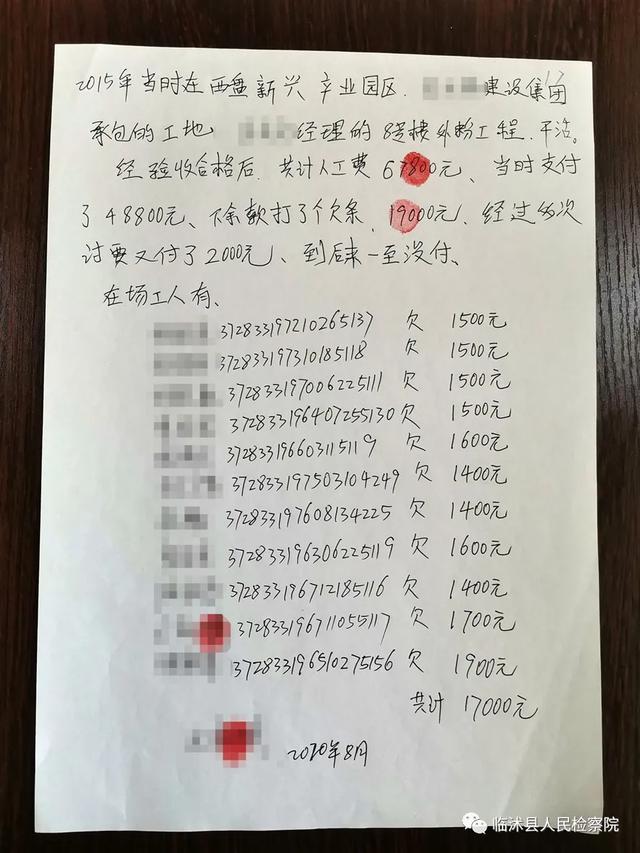 2015年当时在西盘新兴产业园区. 建设集团
承包的工地 经理的8号楼外粉工程.干活。
经验收合格后.共计人工费67800元、当时支付
了48800元、下余款打了个欠条、19000元、经过多次
讨要又付了2000元、到后来一至没付、
在场工人有、
372833197210265137 欠 1500元
372833197310185118 欠 1500元
372833197006225111 欠 1500元
372833196407255130 欠 1500元
372833196603115119 欠 1600元
372833197503104249 欠 1400元
372833197608134225 欠 1400元
372833196306225119 欠 1600元
372833196712185116 欠 1400元
372833196711055117 欠 1700元
372833196510275156 欠 1900元
共计 17000元
2020年8月
临沭县人民检察院